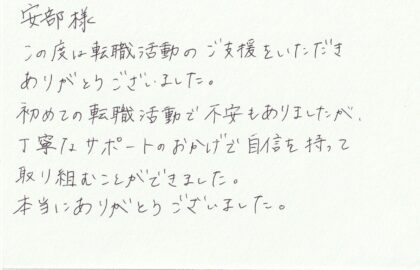 安部様
この度は転職活動のご支援をいただき
ありがとうございました。
初めての転職活動で不安もありましたが、
丁寧なサポートのおかげで自信を持って
取り組むことができました。
本当にありがとうございました。